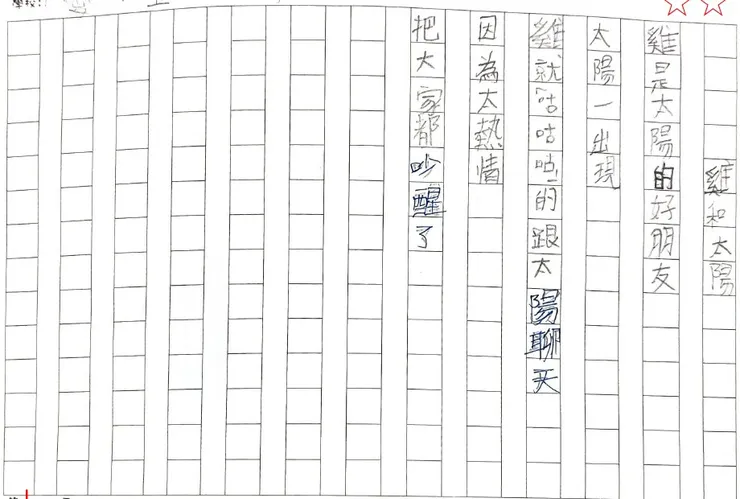 雞和太陽
雞是太陽的好朋友
太陽一出現
雞就咕咕咕的跟太陽聊天
因為太熱情
把大家都吵醒了